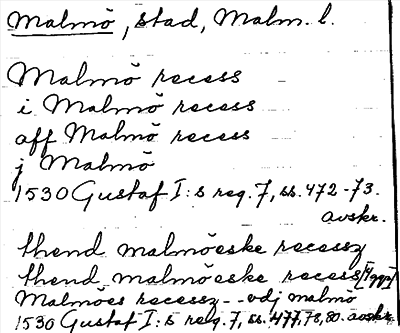 Malmö, stad, Malm. l.
Malmö recess
i Malmö recess
aff Malmö recess
j Malmö
1530 Gustaf I:s reg. 7, ss. 472-73.
avskr.
thend malmöeske recessz
thend malmöeske recess
Malmöes recessz - - vdj malmö
1530 Gustaf I:s reg. 7, ss. 477, 78, 80. avskr.